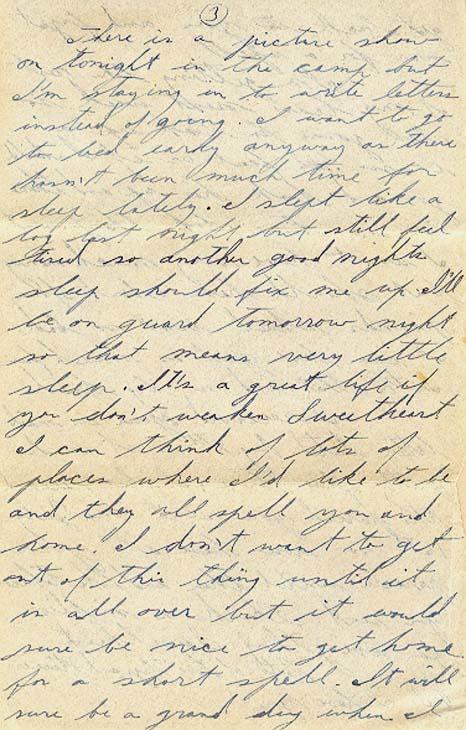 3
There is a picture show
on tonight in the camp but
I'm staying in to write letters
instead of going. I want to go
to bed early anyway as there
hasn't been much time for
sleep lately. I slept like a
log last night but still feel
tired so another good nights
sleep should fix me up. I'll
be on guard tomorrow night
so that means very little
sleep. It's a great life if
you don't weaken Sweetheart
I can think of lots of
places where I'd like to be
and they all spell you and
home. I don't want to get
out of this thing until it
is all over but it would
sure be nice to get home
for a short spell. It will
sure be a grand day when I